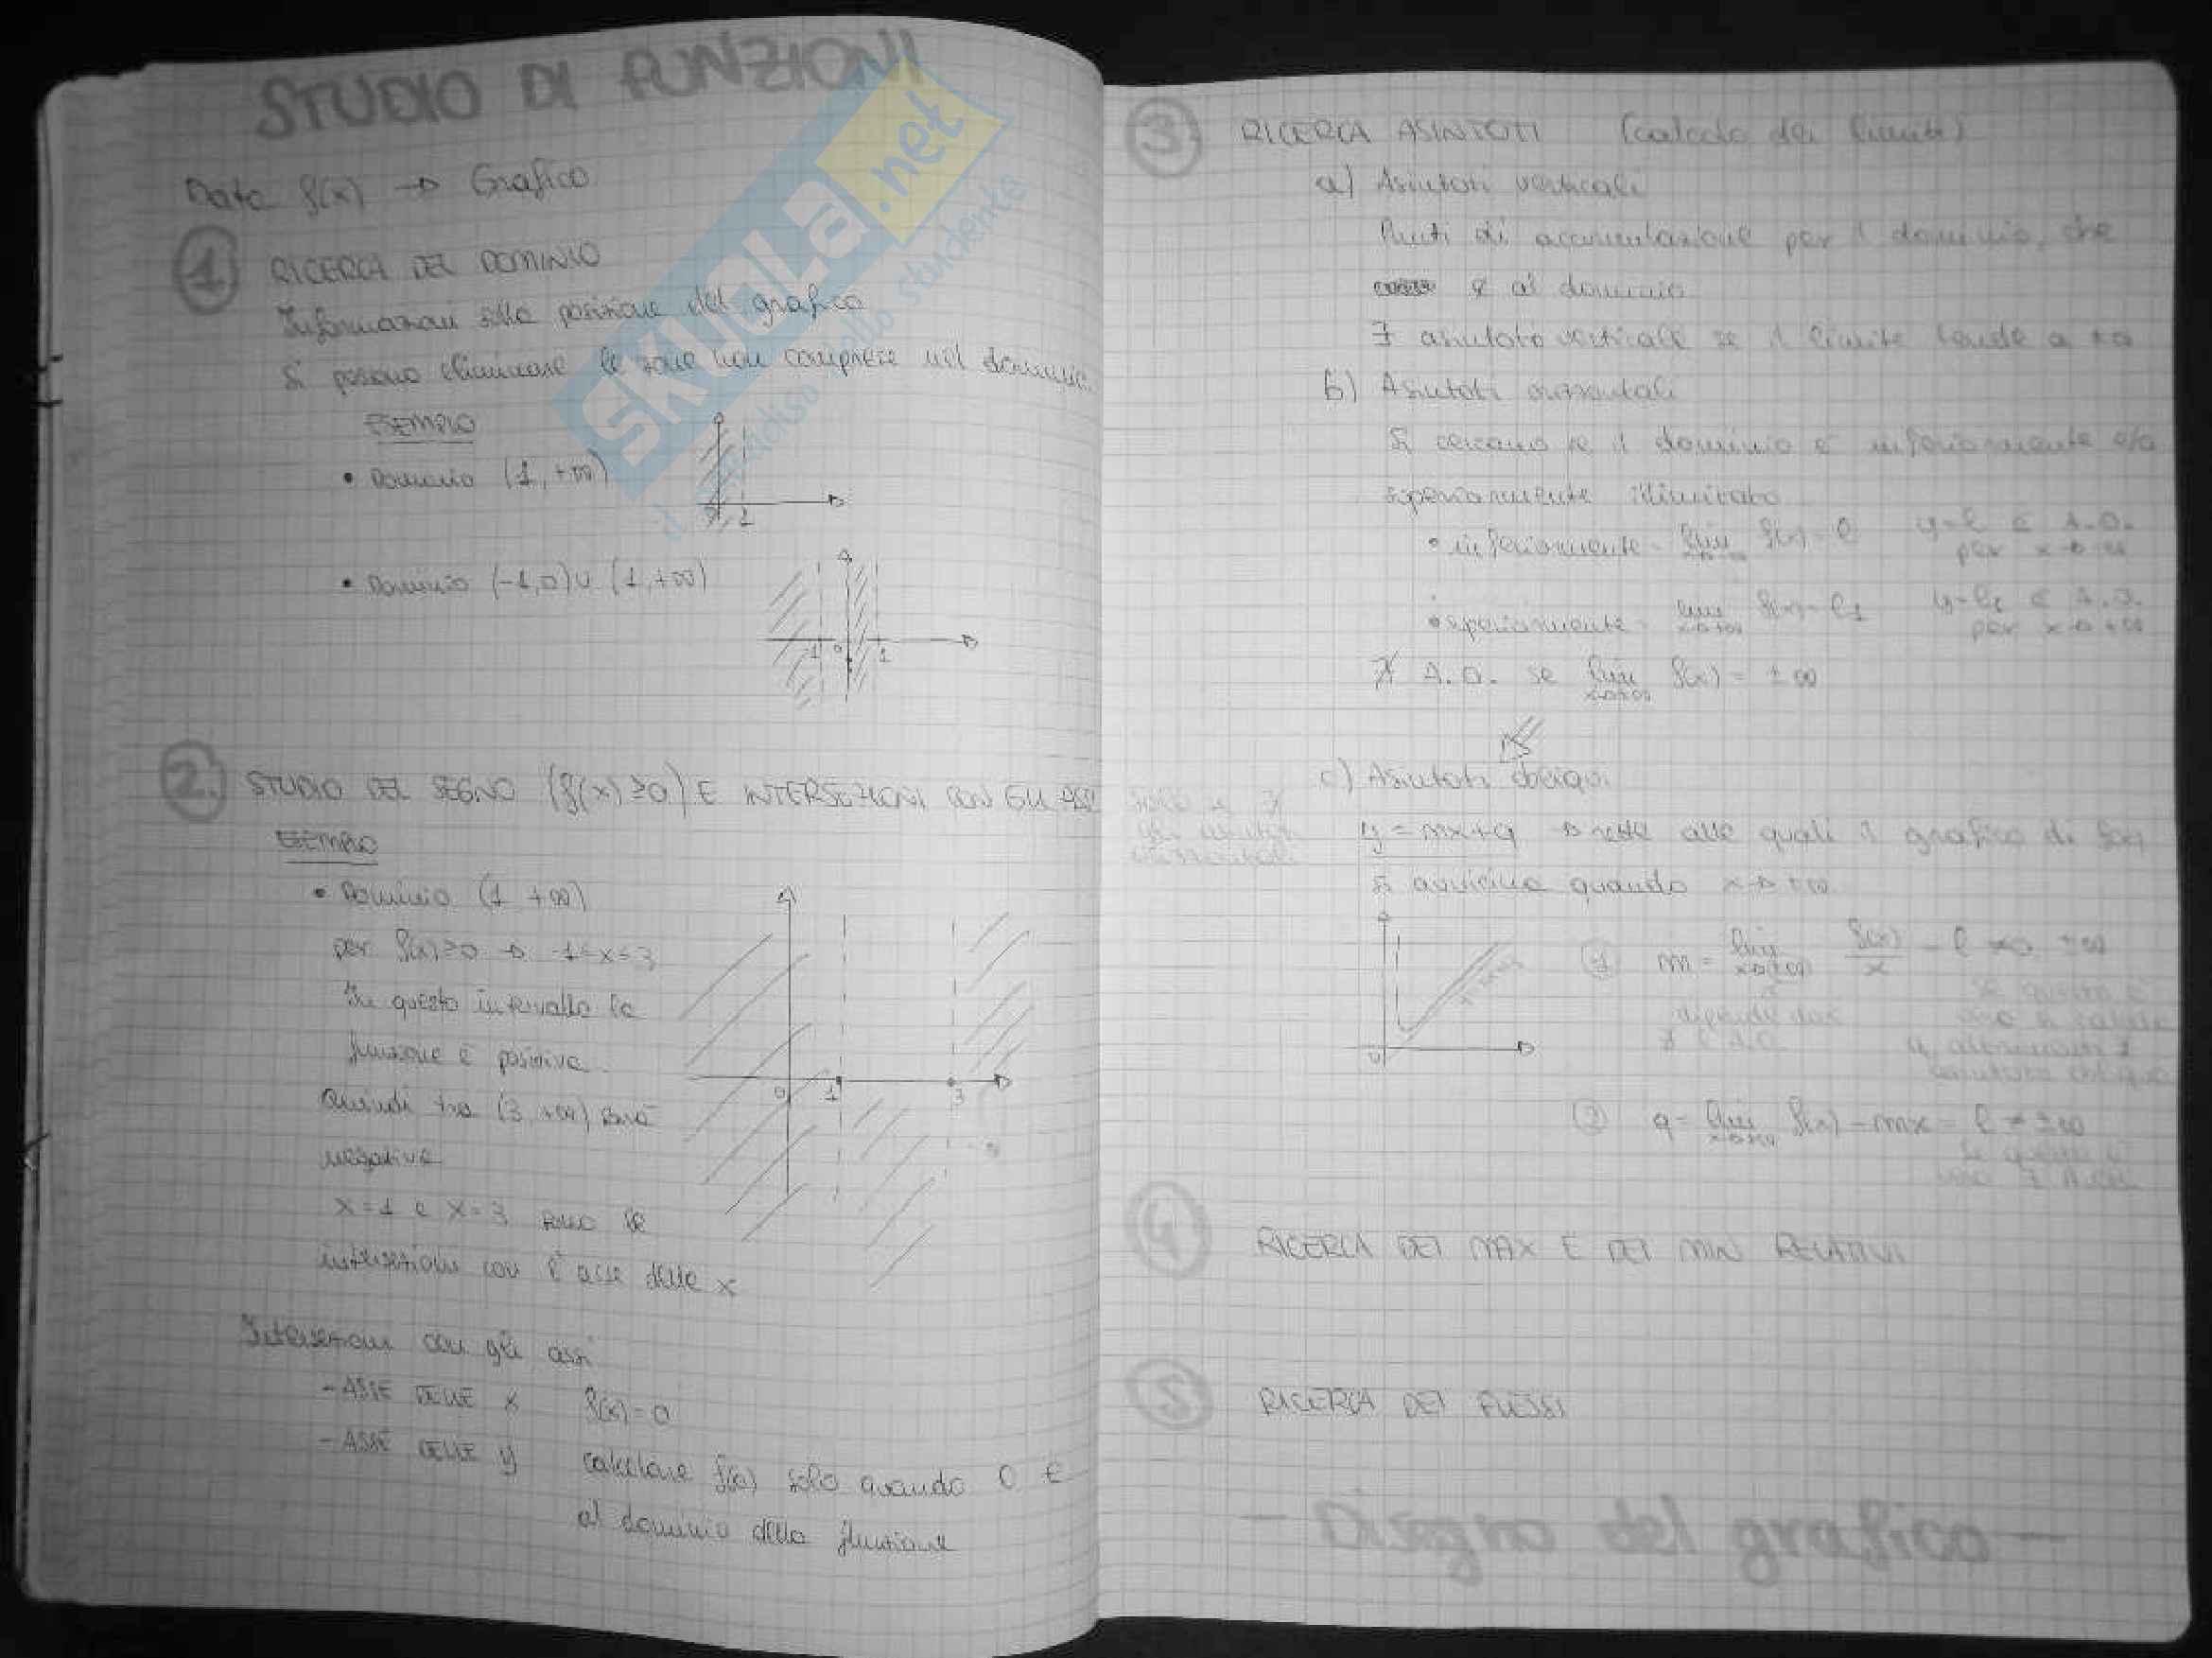 STUDIO DI FUNZIONI
Data f(x) → Grafico
1. RICERCA DEL DOMINIO
Informazioni sulla posizione del grafico
Si possono eliminare le zone non comprese nel dominio.
ESEMPIO
• Dominio (1, +∞)
0 1
• Dominio (-1,0) ∪ (1,+∞)
-1 0 1
2. STUDIO DEL SEGNO (f(x) ≥0) E INTERSEZIONI CON GLI ASSI
ESEMPIO
• Dominio (1 +∞)
per f(x) ≥ 0 → -1≤x≤3
In questo intervallo la
funzione è positiva.
Quindi tra (3, +∞) sarà
negativa
x=1 e x=3 sono le
intersezioni con l'asse delle x
0 1 3
Intersezioni con gli assi
- ASSE DELLE x f(x)=0
- ASSE DELLE y calcolare f(0) solo quando 0 ∈
al dominio della funzione
3. RICERCA ASINTOTI (calcolo dei limiti)
a) Asintoti verticali
Punti di accumulazione per il dominio, che
al dominio
∃ asintoto verticale se il limite tende a ±∞
b) Asintoti orizzontali
Si cercano se il dominio è inferiormente e/o
superiormente illimitato
• inferiormente - lim f(x) = l y=l è A.O.
per x→-∞
• superiormente - lim x→+∞ f(x) = l1 y=l1 è A.O.
per x→+∞
∄ A.O. se lim x→±∞ f(x) = ±∞
c) Asintoti obliqui
solo se ∄
gli asintoti
orizzontali
y = mx+q → rette alle quali il grafico di f(x)
si avvicina quando x→±∞
0
1 m = lim x→±∞ f(x)/x = l ≠0, ±∞
se questo è
2 q = lim f(x) - mx = l ≠ ±∞
4 RICERCA DEI MAX E DEI MIN RELATIVI
5 RICERCA DEI FLESSI
- Disegno del grafico -
SKUOLA.net
il paradiso dello studente